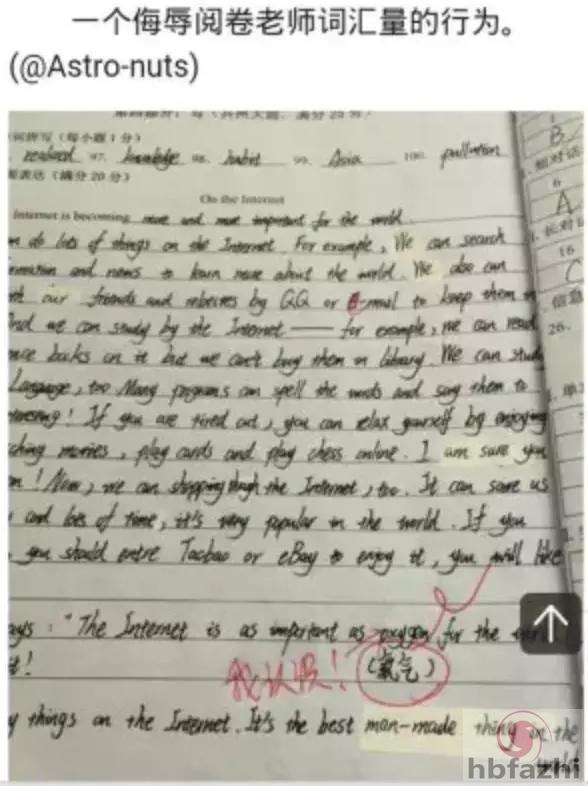 一个侮辱阅卷老师词汇量的行为。
(@Astro-nuts)
(每小题1分)
realized 97. knowledge 98. habit 99. Asia 100. pollution
表达(满分20分)
On the Internet
Internet is becoming more and more important for the world.
do lots of things on the Internet. For example, We can search
and news to learn more about the world. We also can
our friends and by QQ or E-mail to keep them in
And we can study by the Internet —— for example, we can read
books on it but we can't buy them in library. We can study
Language, too. Many programs can spell the words and say them to
! If you are tired out, you can relax yourself by enjoying
movies, play cards and play chess online. I am sure you
! Now, we can shopping the Internet, too. It can save us
and lots of time, it's very popular in the world. If you
you should entre Taobao or eBay to enjoy it, you will like
: "The Internet is as important as oxygen for the
我认识! (氧气)
things on the Internet. It's the best man-made thing in the
world
B
A
16
C
26.
hbfazhi